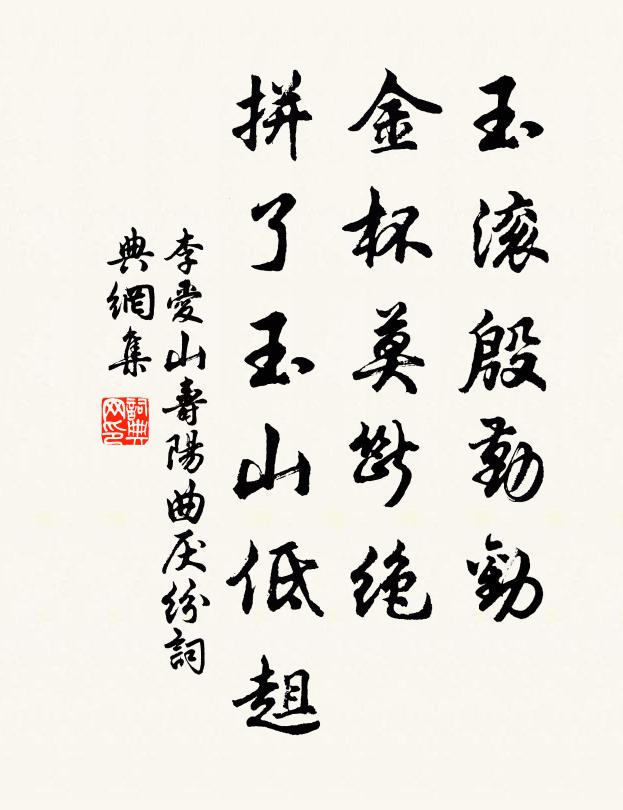 玉滚殷勤勸
金杯莫斷絕
拼了玉山低趄
李愛山壽陽曲厌紛詞
典網集
詞典
网印